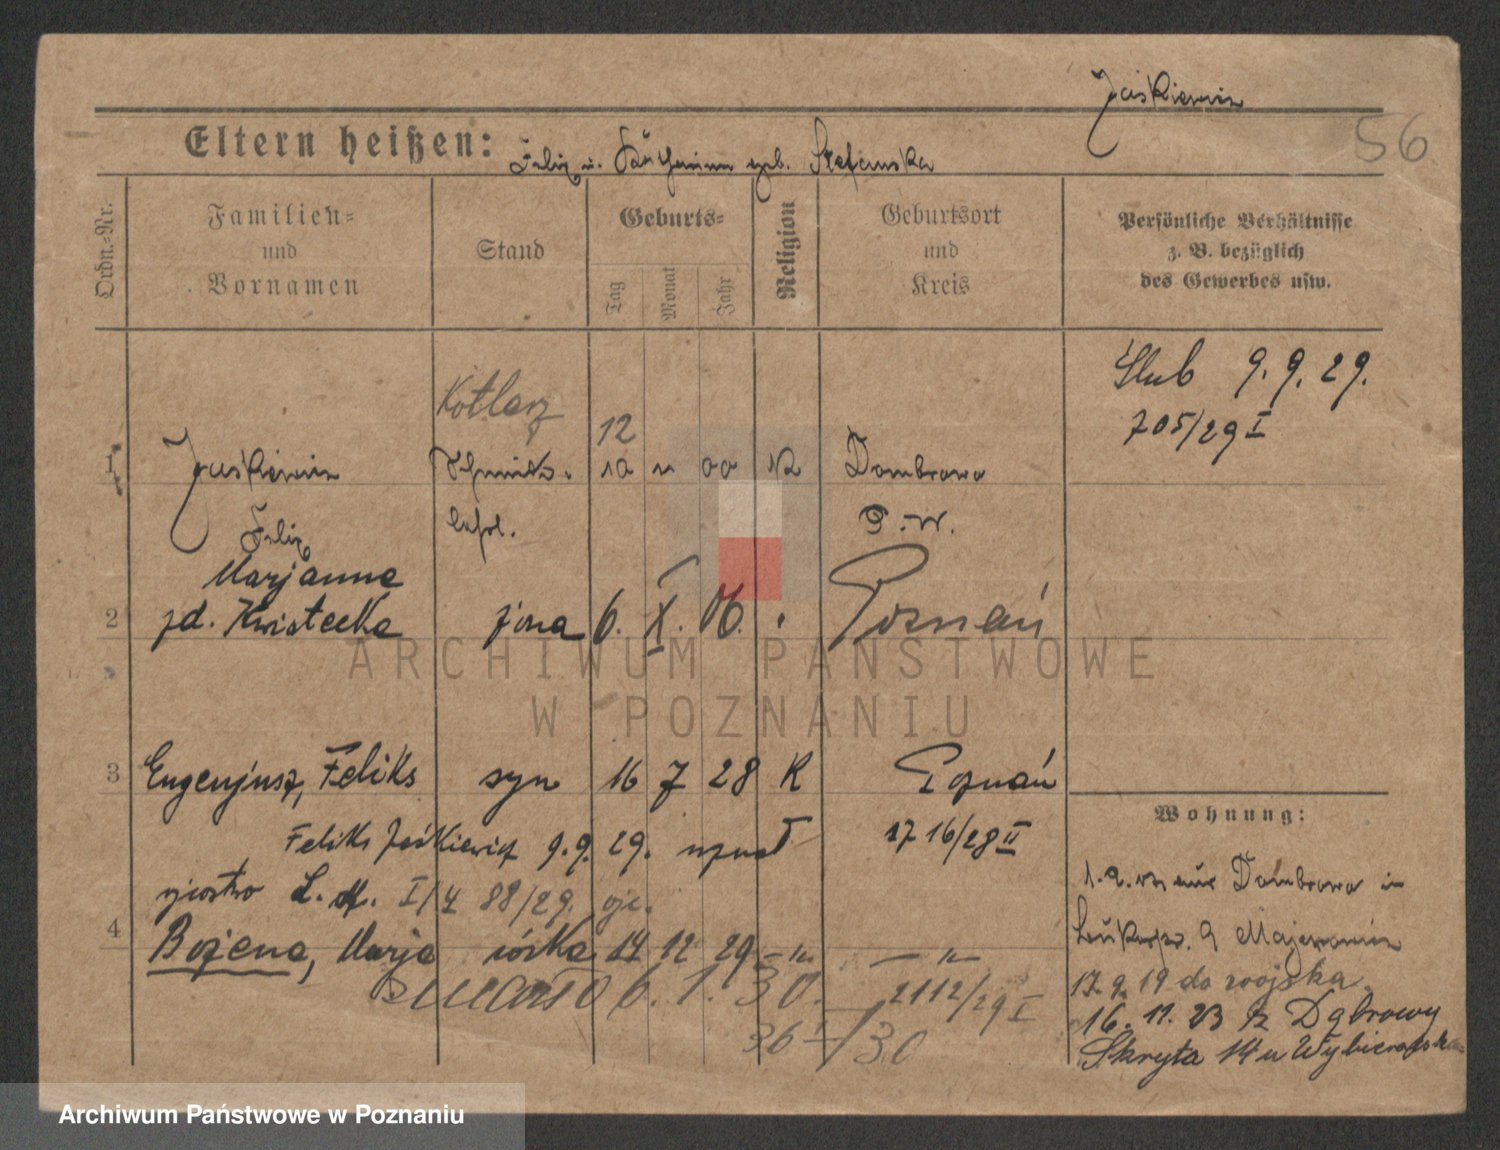 Jaskiewicz
56
Eltern heißen: Felix u. Katharina geb. Stefanska
Ordn.-Nr.
Familien- und Vornamen
Stand
Geburts-
Tag
Monat
Jahr
Religion
Geburtsort und Kreis
Persönliche Verhältnisse
z. B. bezüglich
des Gewerbes usw.
Ślub 9. 9. 29.
705/29 I
Kotlarz
12
1 Jaskiewicz Schmied- 10 11 00 K Dombrowa
Felix Lehrl. P.-W.
Marjanna
2 zd. Kwiatecka żona 6. X. 06. Poznań
3 Eugenjusz, Feliks syn 16 7 28 K Poznań
1716/28 II
Feliks Jaśkiewicz 9.9. 29. uznał
L. M. I/4 88/29. ojc.
4 Bożena, Marja córka 14 12 29 – " – — " —
zmarło 6. 1. 30. 2112/29 I
36 I/30
Wohnung:
1. 2. Dombrowa in
9 Majerowicz
17. 9. 19 do wojska
16. 11. 23 z Dąbrowy
Skryta 14 u Wybieralska
ARCHIWUM PAŃSTWOWE
W POZNANIU
Archiwum Państwowe w Poznaniu